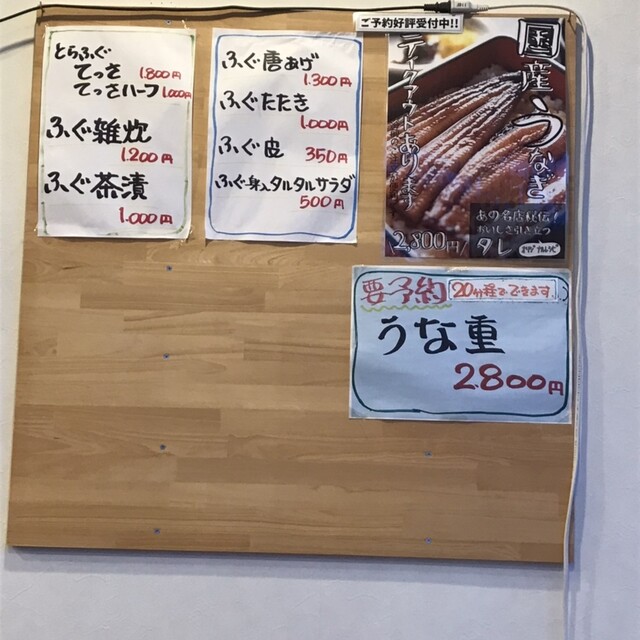 とらふぐ
てっさ 1.800円
てっさハーフ 1.000円
ふぐ雑炊
1.200円
ふぐ茶漬
1.000円
ふぐ唐あげ
1.300円
ふぐたたき
1.000円
ふぐ皮 350円
ふぐ身入タルタルサラダ
500円
ご予約好評受付中!!
国産うなぎ
テークアウトあります
2,800円
あの名店秘伝!
おいしさ引き立つ
タレ
要予約 20分程でできます。
うな重
2.800円